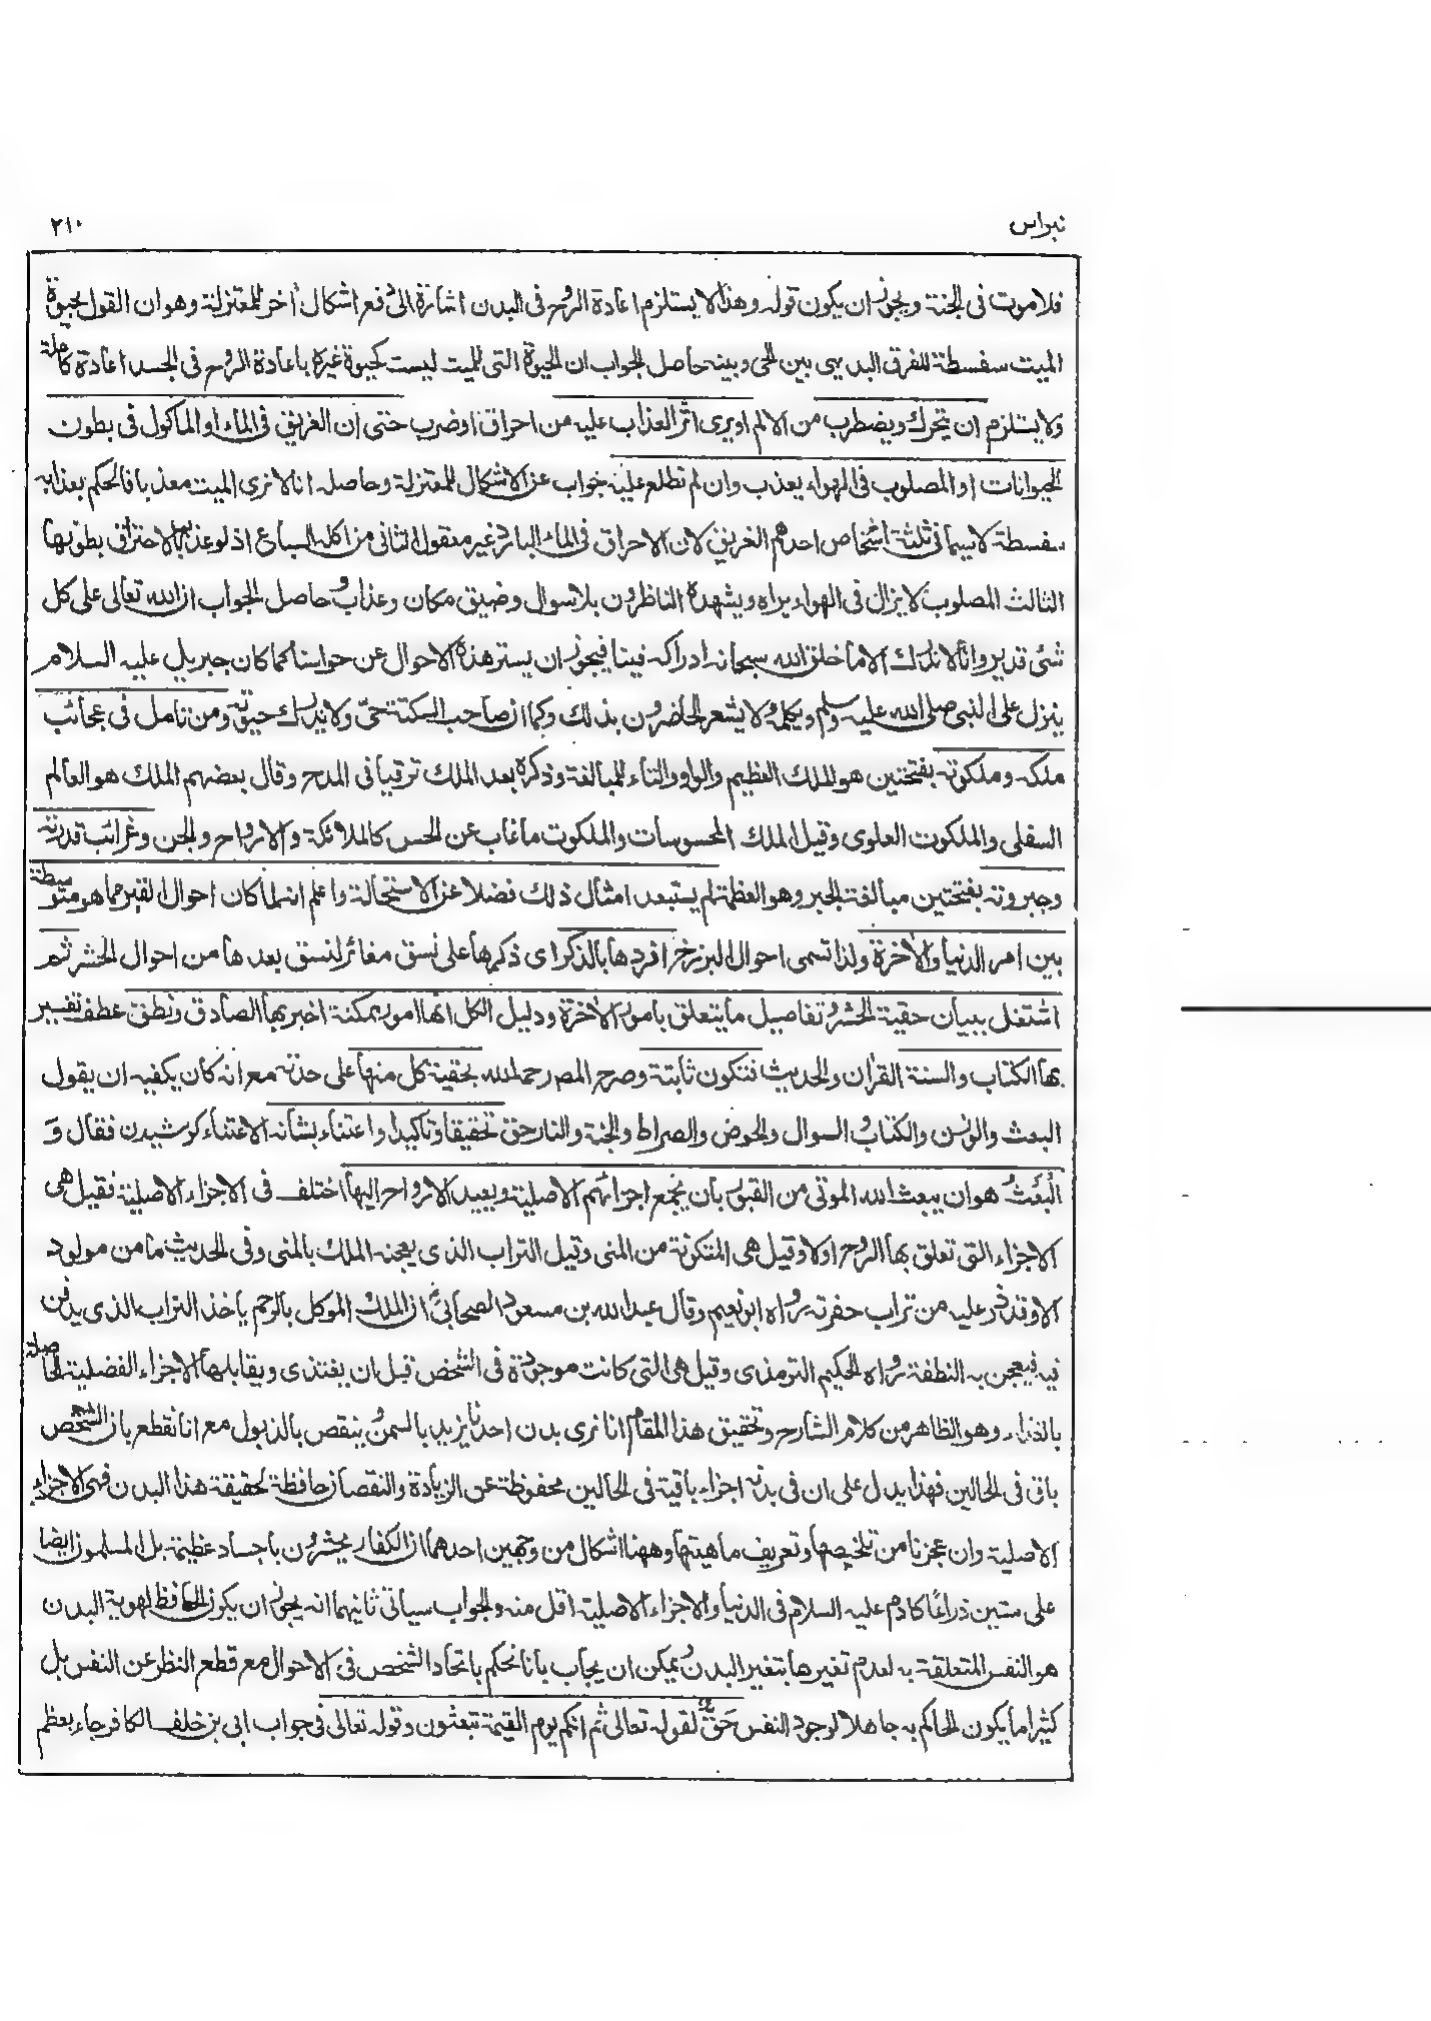 نبراس
٢١٠
فلا موت فى الجنة ويجوز ان يكون قوله وهذا لا يستلزم اعادة الروح فى البدن اشارة الى دفع اشكال اخر للمعتزلة وهو ان القول بحيوة
الميت سفسطة للفرق البديهى بين الحى وبينه حاصل الجواب ان الحيوة التى للميت ليست كحيوة غيره باعادة الروح فى الجسد اعادة كاملة
ولا يستلزم ان يتحرك ويضطرب من الالم او يرى اثر العذاب عليه من احراق او ضرب حتى ان الغريق فى الماء او المأكول فى بطون
الحيوانات او المصلوب فى الهواء يعذب وان لم نطلع عليه جواب عن الاشكال للمعتزلة وحاصله انا لا نرى الميت معذبا فالحكم بعذابه
سفسطة لا سيما فى ثلثة اشخاص احدهم الغريق لان الاحراق فى الماء البارد غير معقول الثانى من اكله السباع اذ لو عذب بالاحتراق بطونها
الثالث المصلوب لا يزال فى الهواء يراه ويشهده الناظرون بلا سوال وضيق مكان وعذاب وحاصل الجواب ان الله تعالى على كل
شئ قدير وانا لا ندرك الا ما خلق الله سبحانه ادراكه فينا فيجوز ان يستر هذه الاحوال عن حواسنا كما كان جبريل عليه السلام
ينزل على النبى صلى الله عليه وسلم ويكلمه ولا يشعر الحاضرون بذلك وكما ان صاحب السكتة حى ولا يدرك حيوته ومن تامل فى عجائب
ملكه وملكوته بفتحتين هو الملك العظيم والواو والتاء للمبالغة وذكره بعد الملك ترقيا فى المدح وقال بعضهم الملك هو العالم
السفلى والملكوت العلوى وقيل الملك المحسوسات والملكوت ما غاب عن الحس كالملائكة والارواح والجن وغرائب قدرته
وجبروته بفتحتين مبالغة الجبر وهو العظمة لم يستبعد امثال ذلك فضلا عن الاستحالة واعلم انه لما كان احوال القبر مما هو متوسطة
بين امر الدنيا والاخرة ولذا تسمى احوال البرزخ افردها بالذكر اى ذكرها على نسق مغائر لنسق بعدها من احوال الحشر ثم
اشتغل ببيان حقية الحشر وتفاصيل ما يتعلق بامور الاخرة ودليل الكل انها امور ممكنة اخبر بها الصادق ونطق عطف تفسير
بها الكتاب والسنة القرأن والحديث فتكون ثابتة وصرح المص رحمه الله بحقية كل منها على حدته مع انه كان يكفيه ان يقول
البعث والوزن والكتاب والسوال والحوض والصراط والجنة والنار حق تحقيقا وتاكيدا واعتناء بشانه الاعتناء كوشيدن فقال وَ
الْبَعْثُ هو ان يبعث الله الموتى من القبور بان يجمع اجزائهم الاصلية ويعيد الارواح اليها اختلف فى الاجزاء الاصلية فقيل هى
الاجزاء التى تعلق بها الروح اولا وقيل هى المتكونة من المنى وقيل التراب الذى يعجنه الملك بالمنى وفى الحديث ما من مولود
الا وقد ذر عليه من تراب حفرته رواه ابو نعيم وقال عبد الله بن مسعود الصحابى ان الملك الموكل بالرحم ياخذ التراب الذى يدفن
فيه فيعجن به النطفة رواه الحكيم الترمذى وقيل هى التى كانت موجودة فى الشخص قبل ان يغتذى ويقابلها الاجزاء الفضلية الحاصلة
بالغذاء وهو الظاهر من كلام الشارح وتحقيق هذا المقام انا نرى بدن احدنا يزيد بالسمن وينقص بالذبول مع انا نقطع بان الشخص
باق فى الحالين فهذا يدل على ان فى بدنه اجزاء باقية فى الحالين محفوظة عن الزيادة والنقصان حافظة لحقيقة هذا البدن فهى الاجزاء
الاصلية وان عجزنا من تلخيصها وتعريف ماهيتها وههنا اشكال من وجهين احدهما ان الكفار يحشرون باجساد عظيمة بل المسلمون ايضا
على ستين ذراعًا كادم عليه السلام فى الدنيا والاجزاء الاصلية اقل منه والجواب سياتى ثانيهما انه يجوز ان يكون الحافظ لهوية البدن
هو النفس المتعلقة به لعدم تغيرها بتغير البدن ويمكن ان يجاب بانا نحكم باتحاد الشخص فى الاحوال مع قطع النظر عن النفس بل
كثيرا ما يكون الحاكم به جاهلا لوجود النفس حَقٌّ لقوله تعالى ثم انكم يوم القيمة تبعثون وقوله تعالى فى جواب ابى بن خلف الكافر جاء بعظم